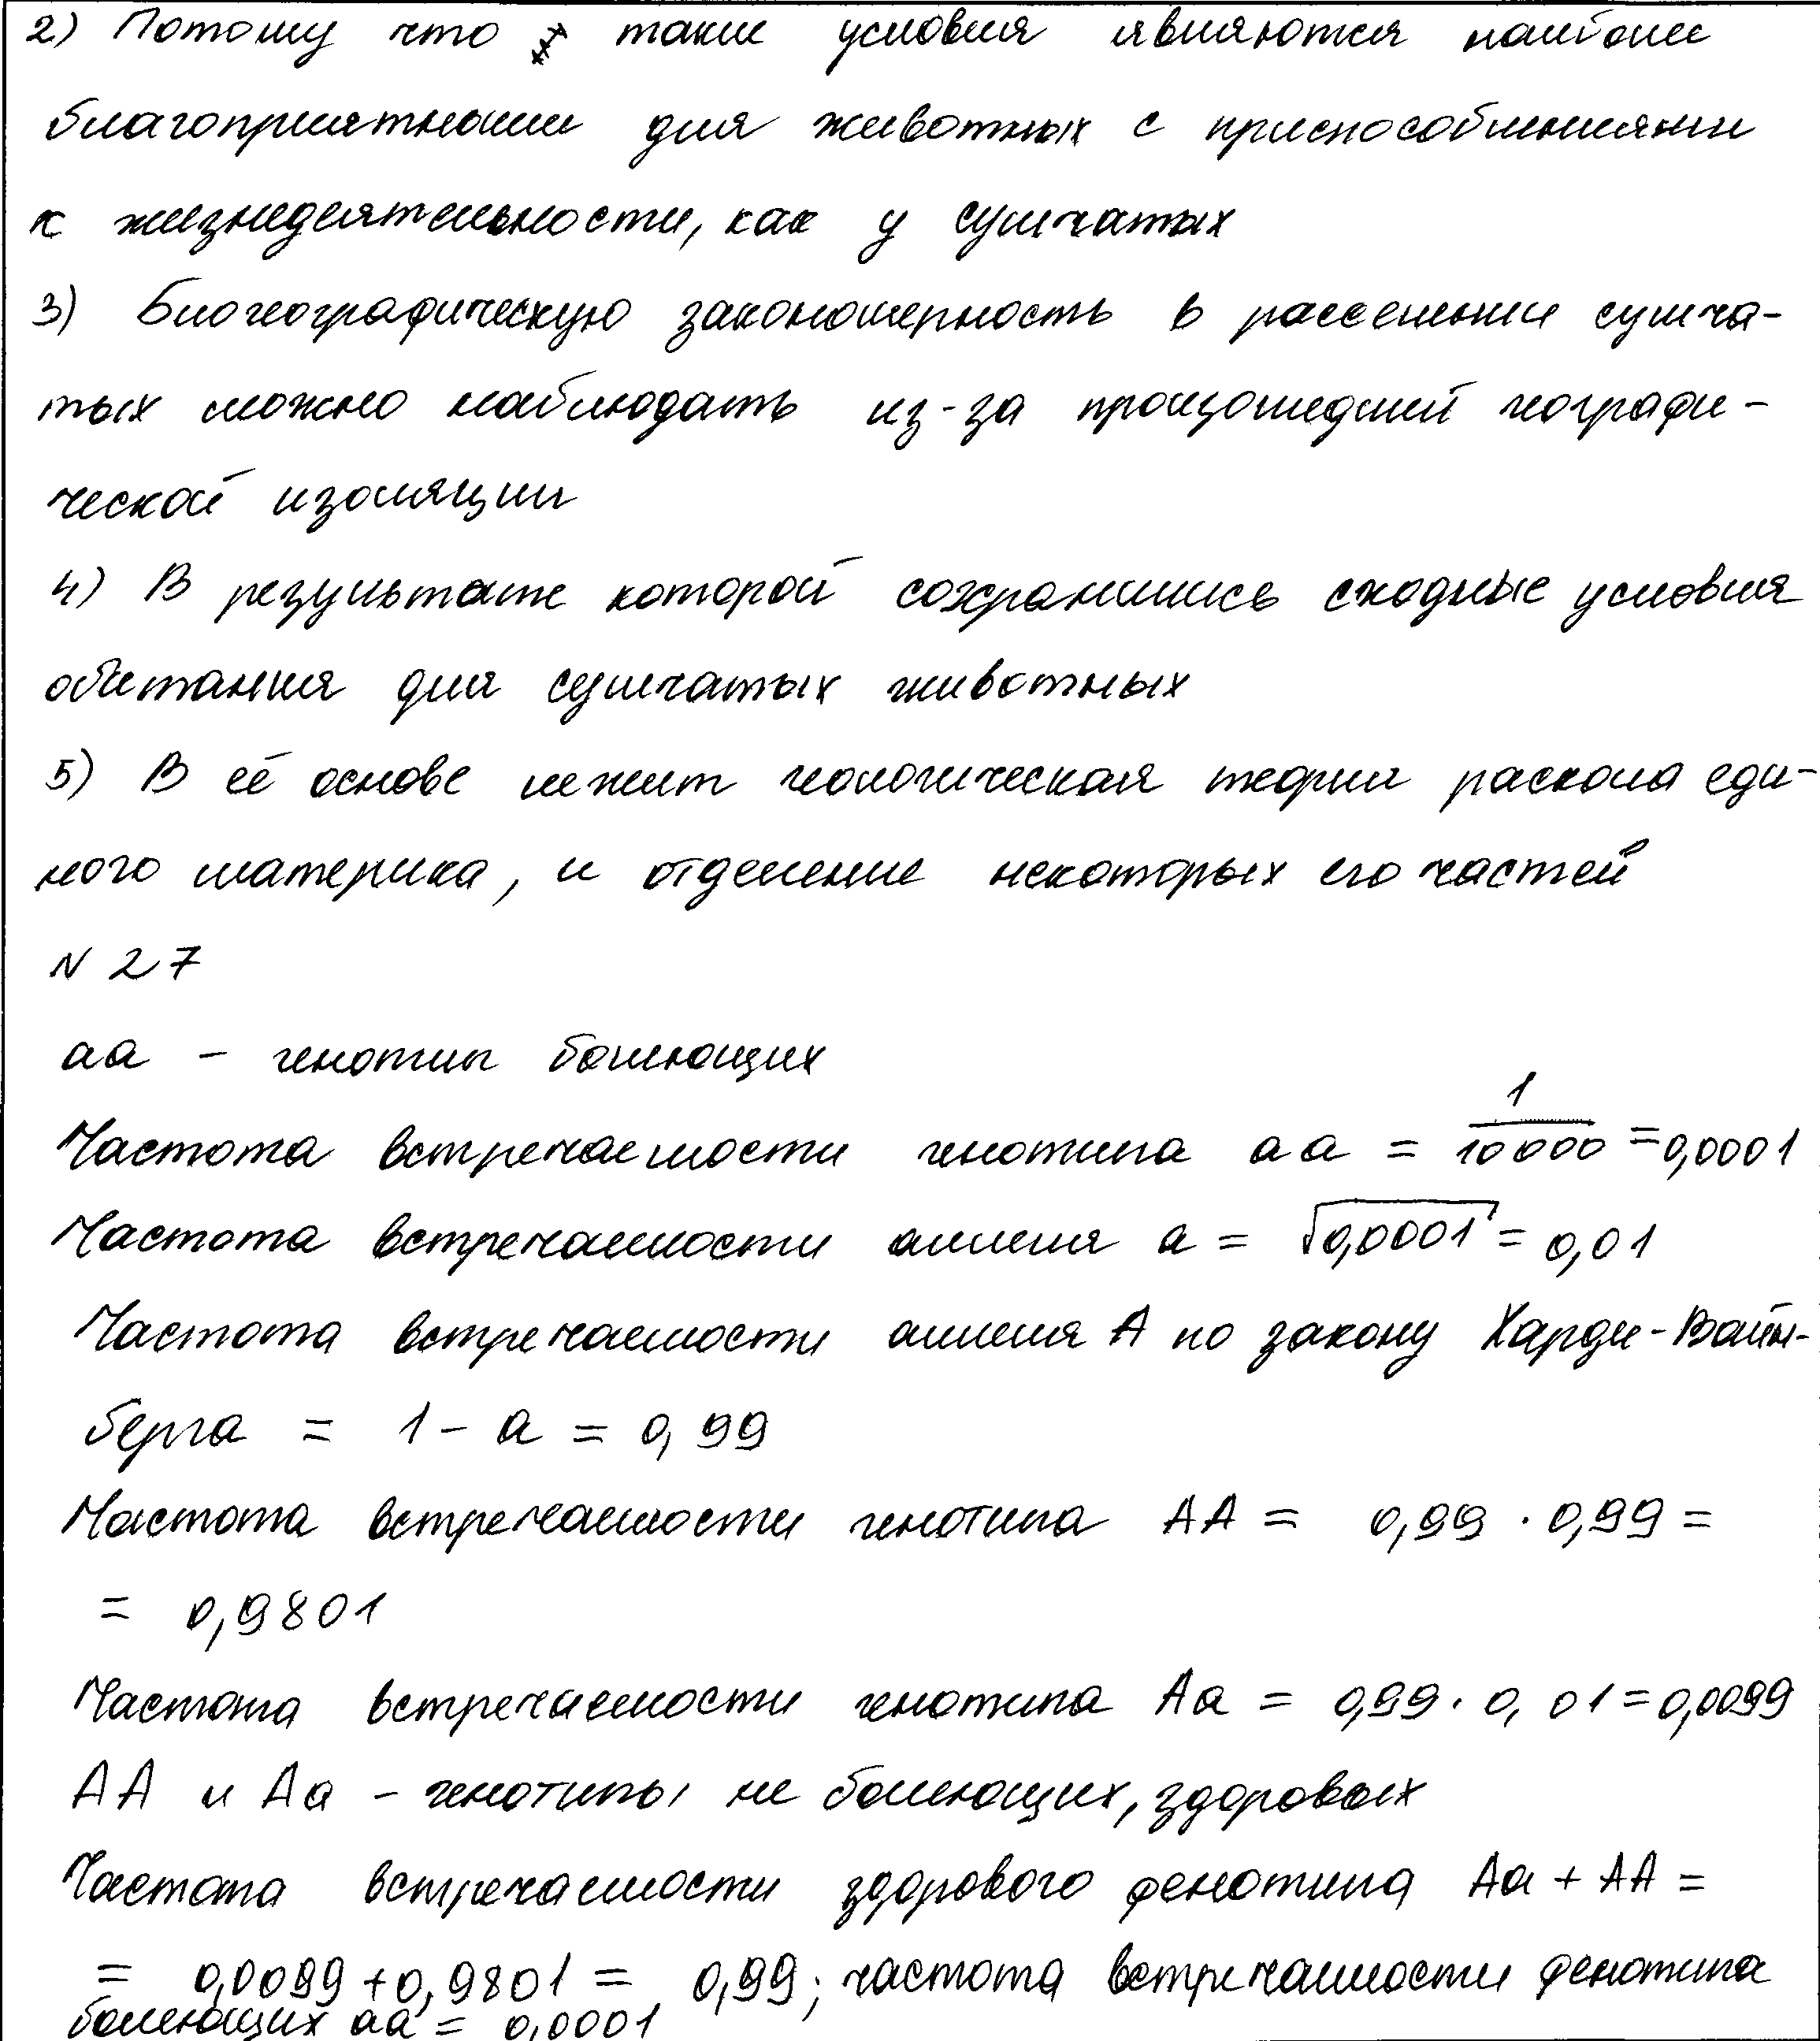 2) Потому что такие условия являются наиболее
благоприятными для животных с приспособлениями
к жизнедеятельности, как у сумчатых
3) Биогеографическую закономерность в расселении сумча-
тых можно наблюдать из-за произошедшей географи-
ческой изоляции
4) В результате которой сохранились сходные условия
обитания для сумчатых животных
5) В её основе лежит геологическая теории раскола еди-
ного материка, и отделение некоторых его частей
N 27
аа - генотип болеющих
Частота встречаемости генотипа аа = 1/10000 = 0,0001
Частота встречаемости аллеля а = √0,0001 = 0,01
Частота встречаемости аллеля А по закону Харди-Вайн-
берга = 1 - а = 0,99
Частота встречаемости генотипа АА = 0,99 · 0,99 =
= 0,9801
Частота встречаемости генотипа Аа = 0,99 · 0,01 = 0,0099
АА и Аа - генотипы не болеющих, здоровых
Частота встречаемости здорового фенотипа Аа + АА =
= 0,0099 + 0,9801 = 0,99; частота встречаемости фенотипа
болеющих аа = 0,0001